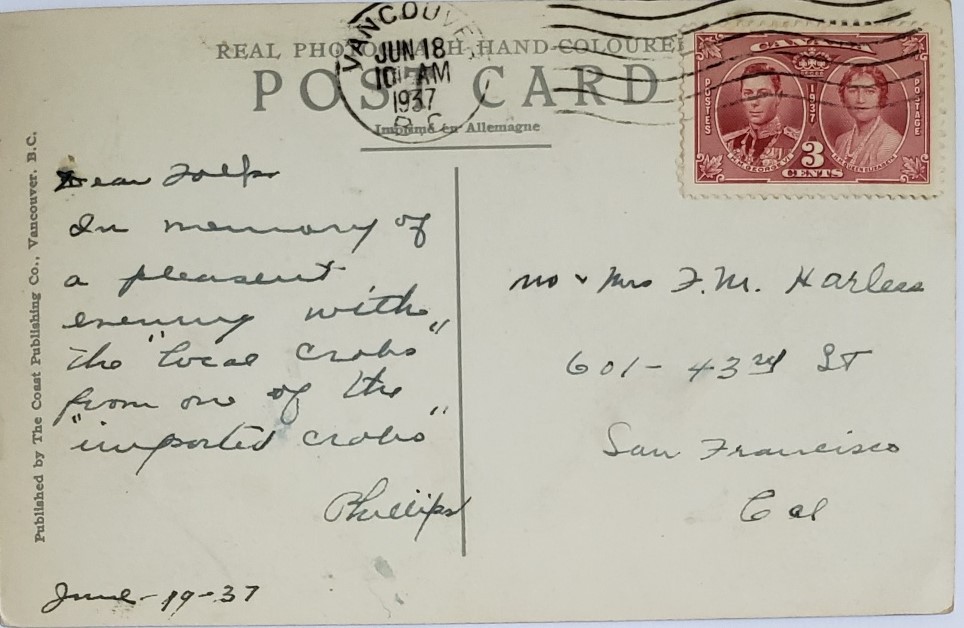 REAL PHOTOGRAPH HAND-COLOURED
POST CARD
Imprimé en Allemagne
VANCOUVER
JUN 18
10 AM
1937
B.C.
CANADA
POSTES
1937
POSTAGE
H.M. GEORGE VI
H.M. QUEEN ELIZABETH
3
CENTS
Published by The Coast Publishing Co., Vancouver. B.C.
Dear Folks
In memory of
a pleasent
evening with
the "local crabs"
from one of the
"imported crabs"
Phillips
June-19-37
Mr & Mrs F.M. Harless
601- 43rd ST
San Francisco
Cal